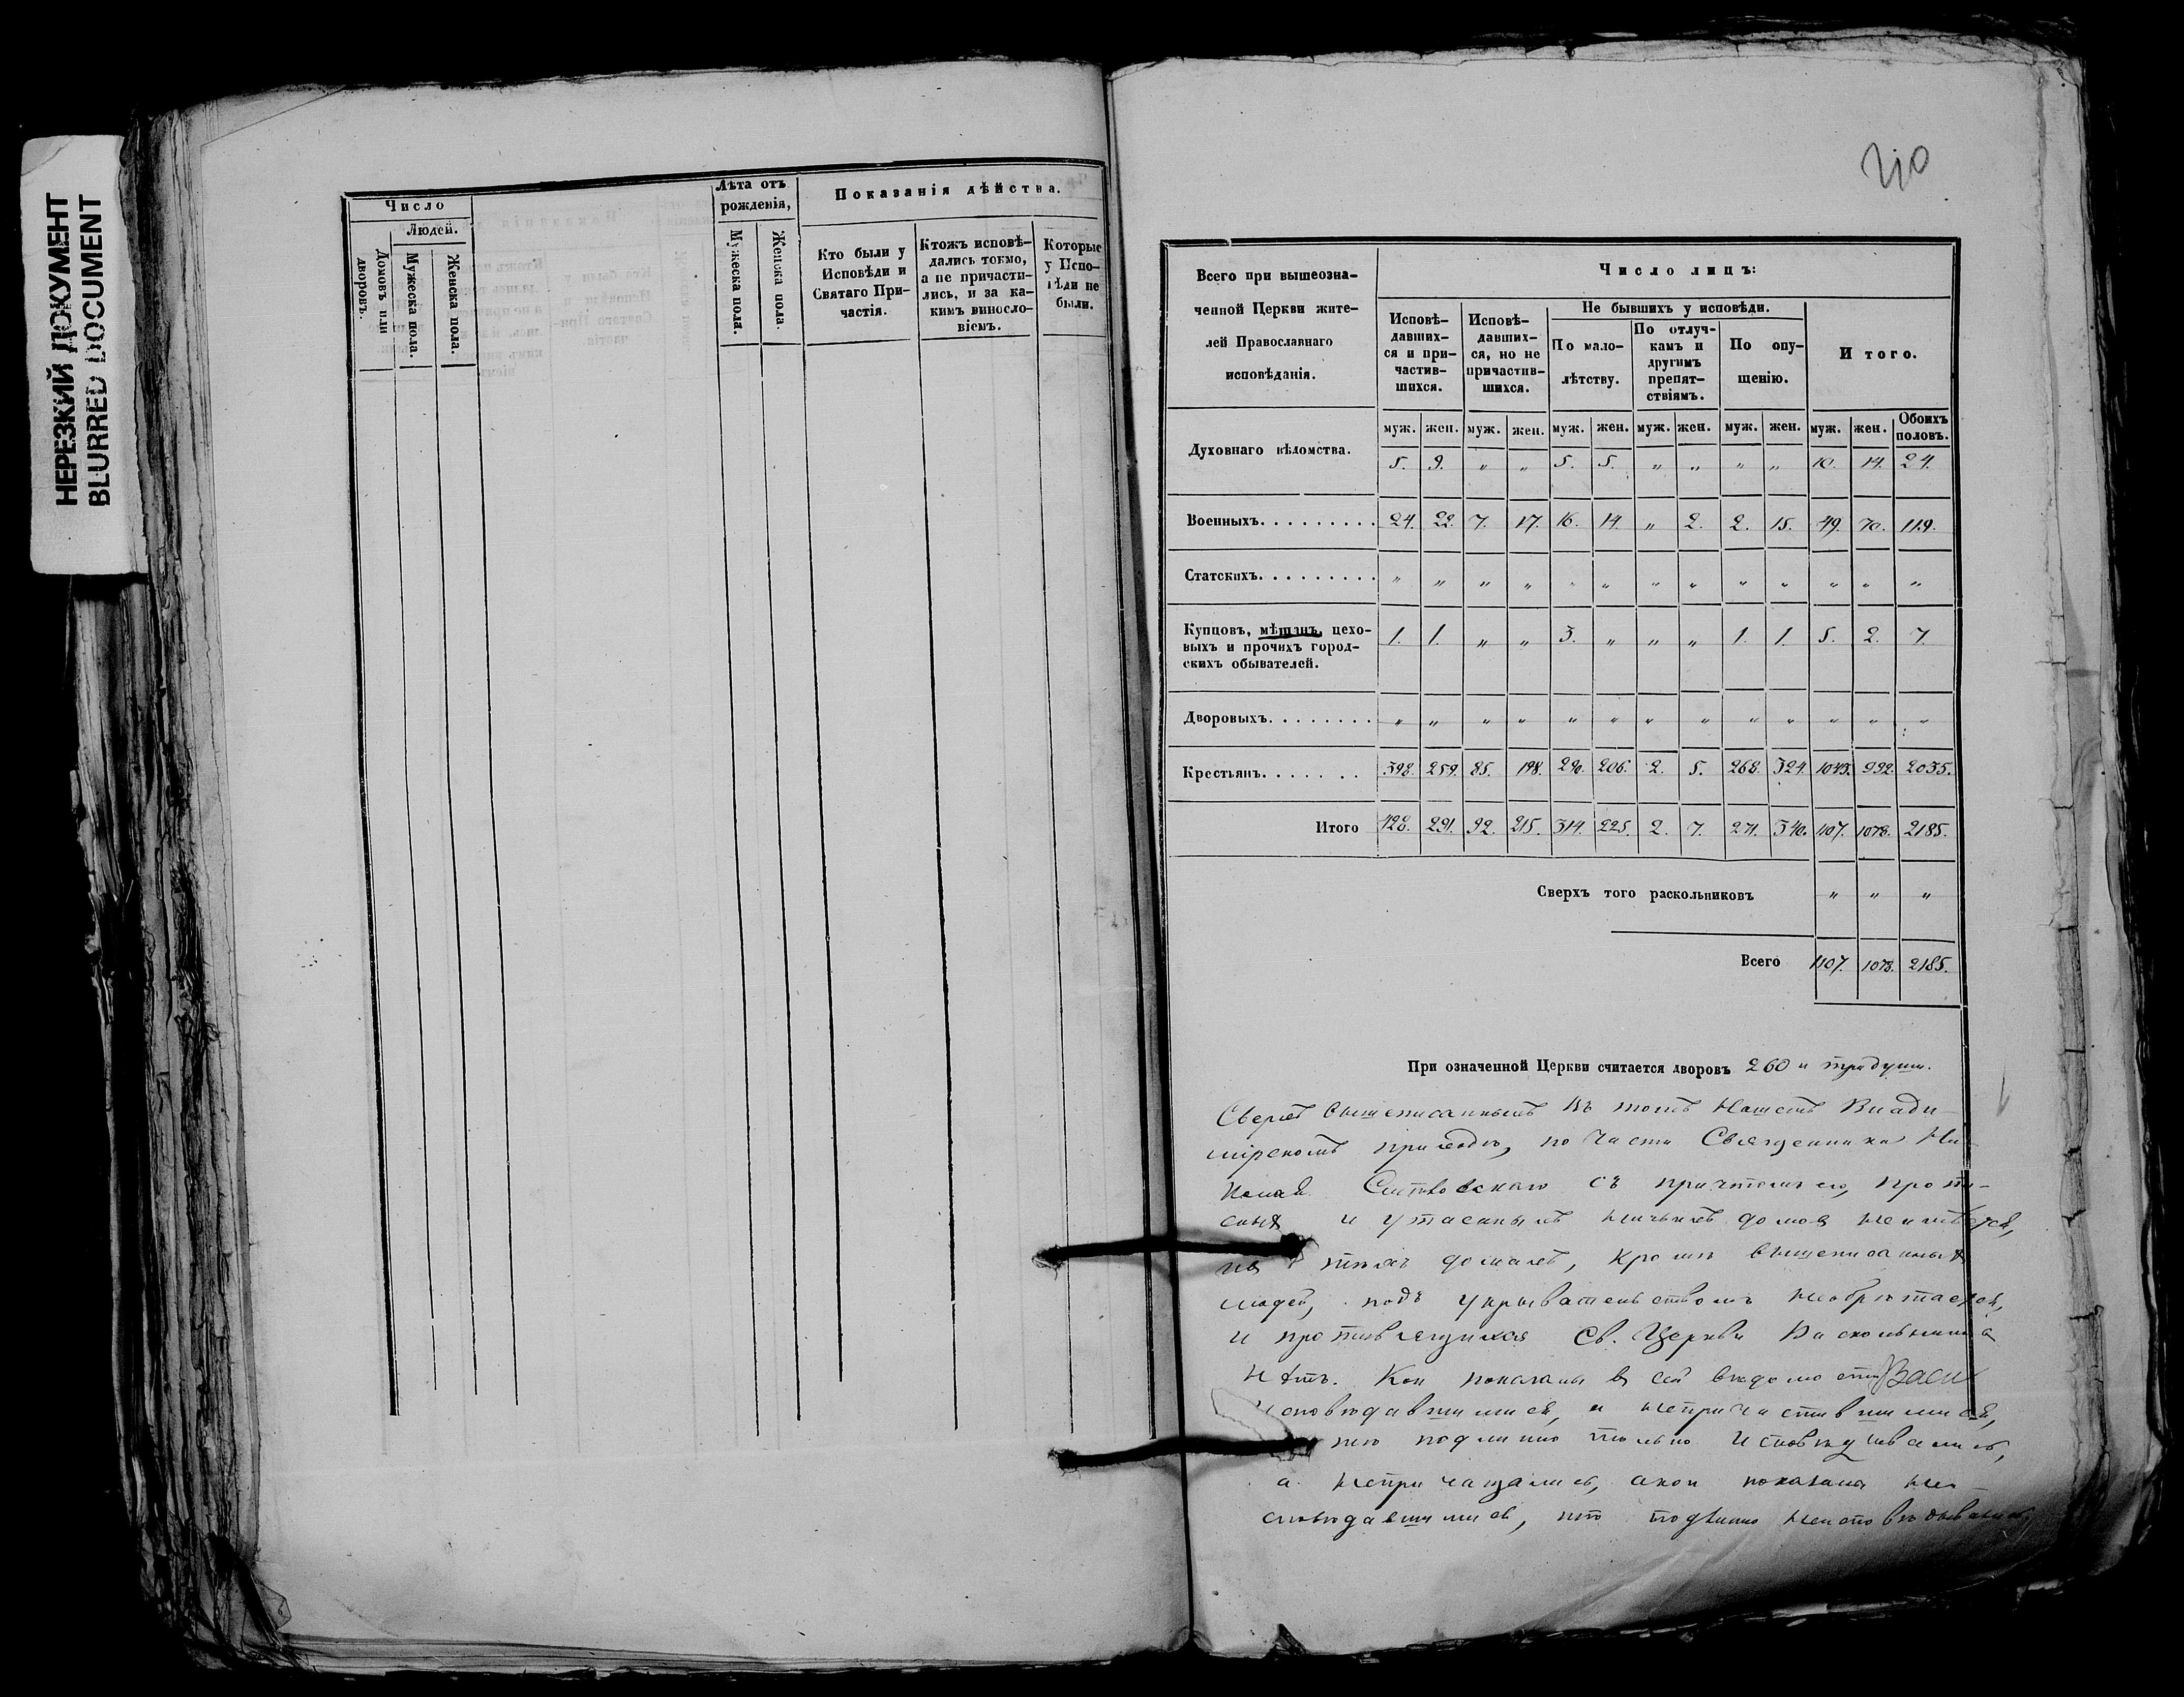 НЕРЕЗКИЙ ДОКУМЕНТ
BLURRED DOCUMENT
Число
Людей.
Домовъ или дворовъ.
Мужеска пола.
Женска пола.
Лѣта отъ рожденія,
Мужеска пола.
Женска пола.
Показанія дѣйства.
Кто были у
Исповѣди и
Святаго При-
частія.
Ктожъ исповѣ-
дались токмо,
а не причасти-
лись, и за ка-
кимъ виносло-
віемъ.
Которые
у Испо-
вѣди не
были.
210
Всего при вышеозна-
ченной Церкви жите-
лей Православнаго
исповѣданія.
Число лицъ:
Исповѣ-
давших-
ся и при-
частив-
шихся.
Исповѣ-
давших-
ся, но не
причастив-
шихся.
Не бывшихъ у исповѣди.
По мало-
лѣтству.
По отлуч-
камъ и
другимъ
препят-
ствіямъ.
По опу-
щенію.
И того.
муж. жен. муж. жен. муж. жен. муж. жен. муж. жен. муж. жен. Обоихъ половъ.
Духовнаго вѣдомства. 5. 9. „ „ 5. 5. „ „ „ „ 10. 14. 24.
Военныхъ. . . . . . . . . 24. 22. 7. 17. 16. 14. „ 2. 2. 15. 49. 70. 119.
Статскихъ. . . . . . . . . „ „ „ „ „ „ „ „ „ „ „ „ „
Купцовъ, мѣщанъ, цехо-
выхъ и прочихъ город-
скихъ обывателей. 1. 1. „ „ 3. „ „ „ 1. 1. 5. 2. 7.
Дворовыхъ. . . . . . . . „ „ „ „ „ „ „ „ „ „ „ „ „
Крестьянъ. . . . . . . 398. 259. 85. 198. 290. 206. 2. 5. 268. 324. 1043. 992. 2035.
Итого 428. 291. 92. 215. 314. 225. 2. 7. 271. 340. 1107. 1078. 2185.
Сверхъ того раскольниковъ „ „ „
Всего 1107. 1078. 2185.
При означенной Церкви считается дворовъ 260 и
Сверхъ вышеписанныхъ въ томъ нашемъ Влади-
мірскомъ приходѣ, по части Священника Ни-
колая съ причтомъ его,
и утаенныхъ ничьихъ домовъ неимѣется,
и въ тѣхъ домахъ, кромѣ вышеписанныхъ
людей, подъ укрывательствомъ необрѣтается,
и противящихся Св. Церкви Раскольников
нѣтъ. Кои показаны въ сей вѣдомости
Исповѣдавшимися, и непричастившимися,
подлинно только Исповѣдывались,
а непричащались, а кои показаны неи-
сповѣдавшимися, подлинно неисповѣдывались.